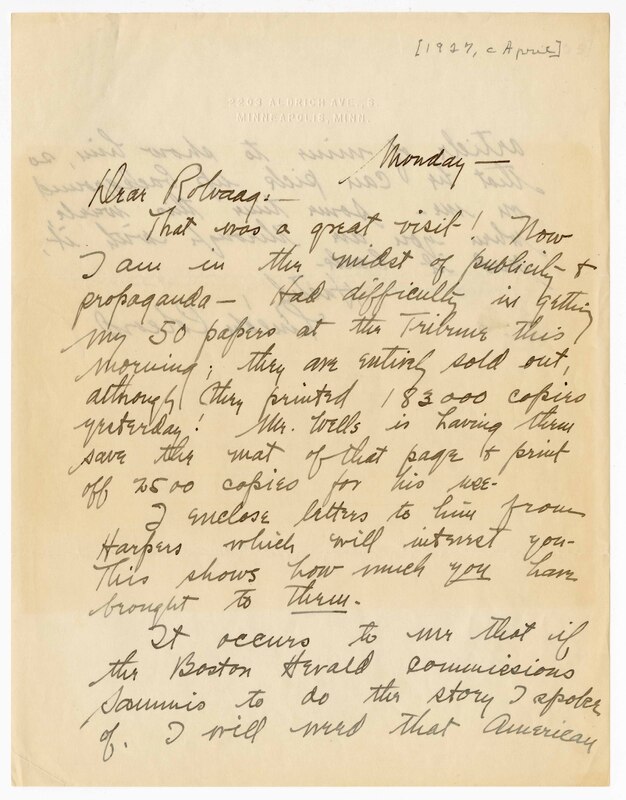 [1927, c April]
2203 ALDRICH AVE., S.
MINNEAPOLIS, MINN.
Monday —
Dear Rolvaag:-
That was a great visit! Now
I am in the midst of publicity &
propaganda — Had difficulty in getting
my 50 papers at the Tribune this
morning; they are entirely sold out,
although they printed 183000 copies
yesterday! Mr. Wells is having them
save the mat of that page & print
off 2500 copies for his use.
I enclose letters to him from
Harpers which will interest you.
This shows how much you have
brought to them.
It occurs to me that if
the Boston Herald commissions
Sammis to do the story I spoke
of. I will need that American